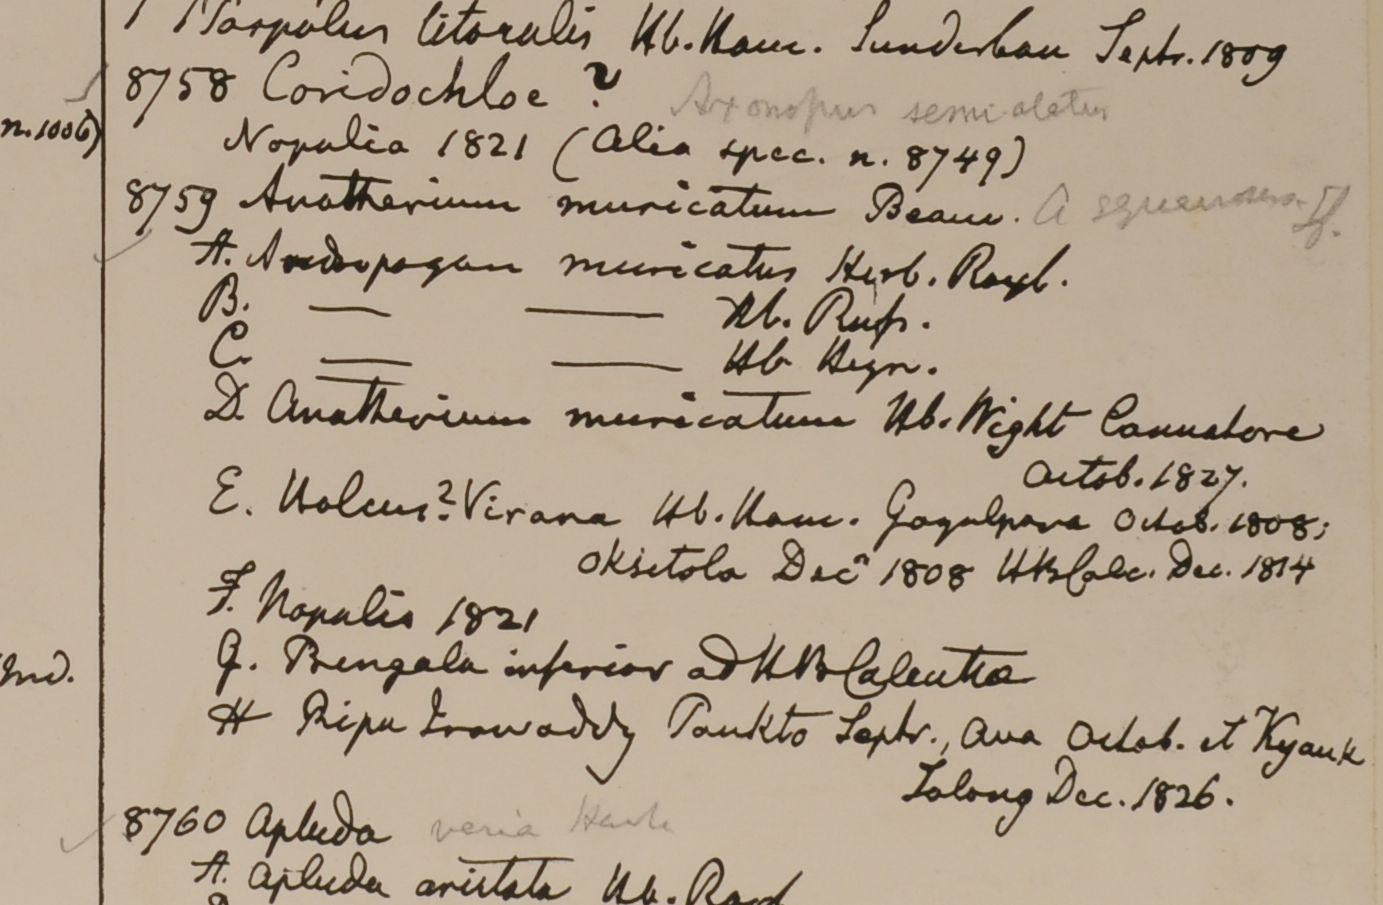 Paspalus litoralis Hb. Ham. Sunderban Septr. 1809
8758 Coridochloe ? Axonopus semialatus
n. 1006) Nopalia 1821 (alia spec. n. 8749)
8759 Anatherium muricatum Beauv. A squarrosus Lf.
A. Andropogon muricatus Herb. Roxb.
B. — — Hb. Russ.
C. — — Hb Heyn.
D. Anatherium muricatum Hb. Wight Cannatore
Octob. 1827.
E. Holcus? Virana Hb. Ham. Goyalpara Octob. 1808;
Oksitola Dec 1808 HBCalc. Dec. 1814
F. Napalia 1821
G. Bengala inferior ad HBCalcutta
Ind.
H Ripa Irawaddy Toukto Septr., Ava Octob. et Kyauk
Tolong Dec. 1826.
8760 Apluda varia Hack
A. Apluda aristata Hb. Roxb